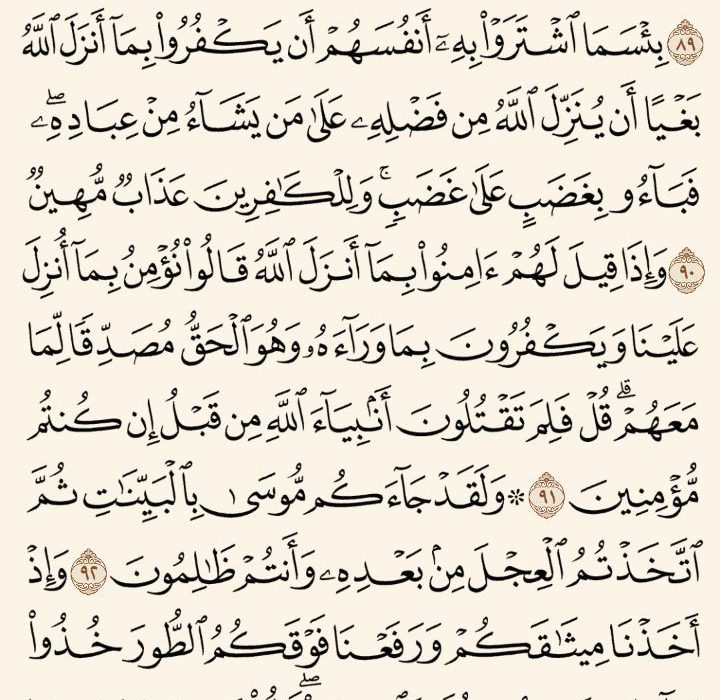 ٨٩ بِئۡسَمَا ٱشۡتَرَوۡاْ بِهِۦٓ أَنفُسَهُمۡ أَن يَكۡفُرُواْ بِمَآ أَنزَلَ ٱللَّهُ
بَغۡيًا أَن يُنَزِّلَ ٱللَّهُ مِن فَضۡلِهِۦ عَلَىٰ مَن يَشَآءُ مِنۡ عِبَادِهِۦۖ
فَبَآءُو بِغَضَبٍ عَلَىٰ غَضَبٖۚ وَلِلۡكَٰفِرِينَ عَذَابٞ مُّهِينٞ
٩٠ وَإِذَا قِيلَ لَهُمۡ ءَامِنُواْ بِمَآ أَنزَلَ ٱللَّهُ قَالُواْ نُؤۡمِنُ بِمَآ أُنزِلَ
عَلَيۡنَا وَيَكۡفُرُونَ بِمَا وَرَآءَهُۥ وَهُوَ ٱلۡحَقُّ مُصَدِّقٗا لِّمَا
مَعَهُمۡۗ قُلۡ فَلِمَ تَقۡتُلُونَ أَنۢبِيَآءَ ٱللَّهِ مِن قَبۡلُ إِن كُنتُم
مُّؤۡمِنِينَ ٩١ ۞ وَلَقَدۡ جَآءَكُم مُّوسَىٰ بِٱلۡبَيِّنَٰتِ ثُمَّ
ٱتَّخَذۡتُمُ ٱلۡعِجۡلَ مِنۢ بَعۡدِهِۦ وَأَنتُمۡ ظَٰلِمُونَ ٩٢ وَإِذۡ
أَخَذۡنَا مِيثَٰقَكُمۡ وَرَفَعۡنَا فَوۡقَكُمُ ٱلطُّورَ خُذُواْ